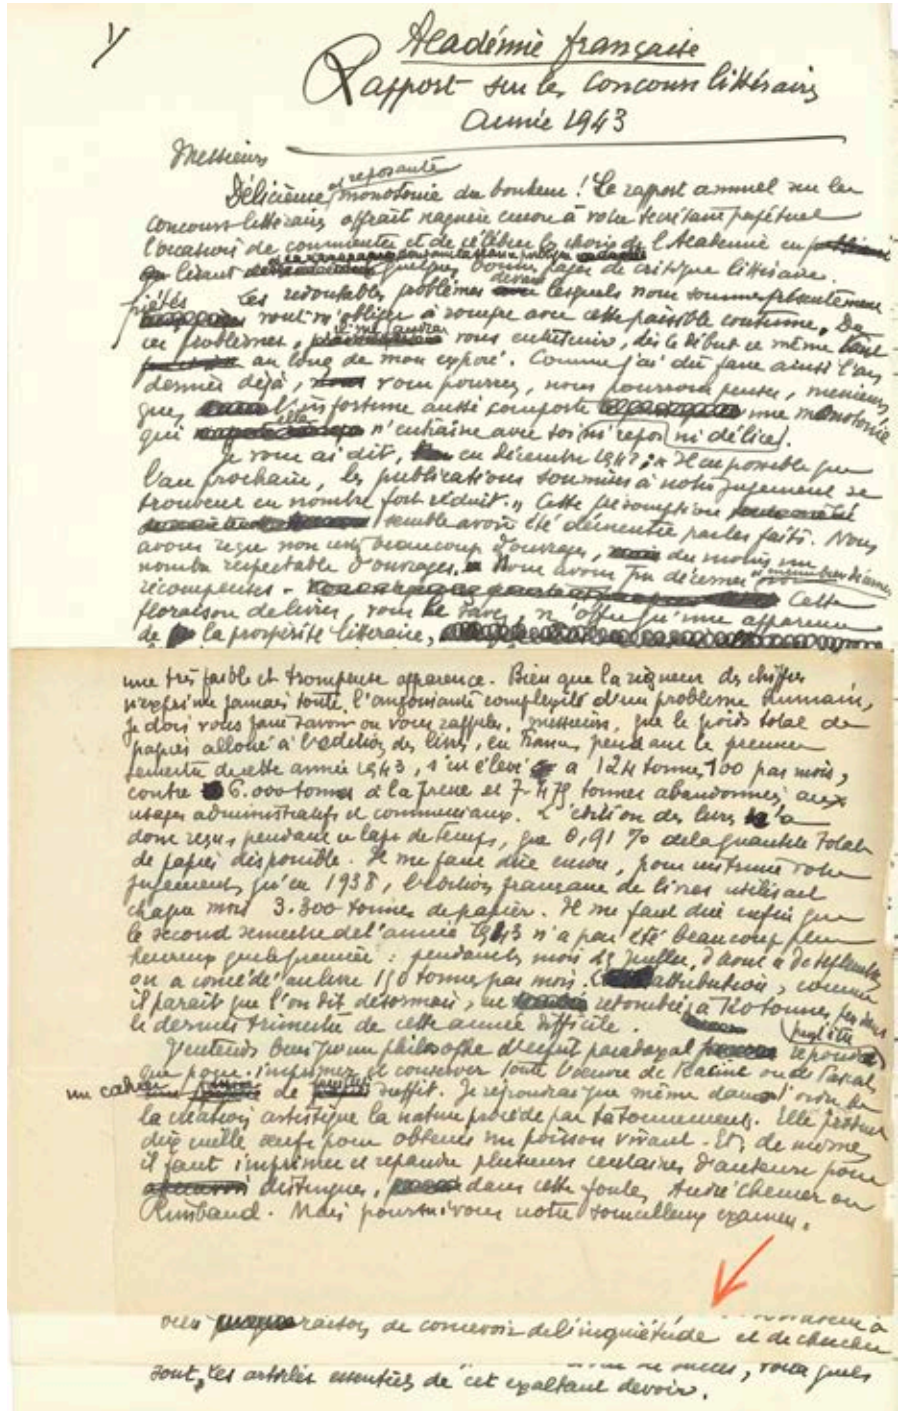 1/
Académie française
Rapport sur les Concours littéraires
année 1943
Messieurs
et reposante
Délicieuse monotonie du bonheur ! Le rapport annuel sur les
concours littéraires offrait naguère encore à votre secrétaire perpétuel
l'occasion de commenter et de célébrer les choix de l'Académie en
lisant quelques bonnes pages de critique littéraire.
devant
Les redoutables problèmes lesquels nous sommes présentement
piétés vont m'obliger à rompre avec cette paisible coutume. De
il me faudra
ces problèmes, vous entretenir, dès le début et même tout
au long de mon exposé. Comme j'ai dû faire ainsi l'an
dernier déjà, vous pourrez, nous pourrons penser, messieurs,
que l'infortune aussi comporte une monotonie
elle
qui n'entraîne avec soi ni repos ni délice.
Je vous ai dit, en décembre 1942 : « Il est possible que
l'an prochain, les publications soumises à notre jugement se
trouvent en nombre fort réduit. » Cette présomption
semble avoir été démentie par les faits. Nous
avons reçu non certes beaucoup d'ouvrages, du moins un
nombre respectable d'ouvrages. Nous avons pu décerner
récompenses - Cette
floraison de livres, vous le savez, n'offre qu'une apparence
de la prospérité littéraire,
une très faible et trompeuse apparence. Bien que la rigueur des chiffres
n'exprime jamais toute l'angoissante complexité d'un problème humain,
je dois vous faire savoir ou vous rappeler, messieurs, que le poids total de
papier alloué à l'édition des livres, en France, pendant le premier
semestre de cette année 1943, s'est élevé à 124 tonnes, 100 par mois,
contre 6.000 tonnes à la presse et 7.479 tonnes abandonnées aux
usages administratifs et commerciaux. L'édition des livres n'a
donc reçu, pendant ce laps de temps, que 0,91 % de la quantité totale
de papier disponible. Il me faut dire encore, pour instruire votre
jugement, qu'en 1938, l'édition française de livres utilisait
chaque mois 3.300 tonnes de papier. Il me faut dire enfin que
le second semestre de l'année 1943 n'a pas été beaucoup plus
heureux que le premier : pendant les mois de juillet, d'août et de septembre
on a concédé au livre 150 tonnes par mois. attribution, comme
il paraît que l'on dit désormais, est retombée à 120 tonnes, pendant
le dernier trimestre de cette année difficile.
J'entends bien qu'un philosophe d'esprit paradoxal peut-être répondra
que pour imprimer et conserver toute l'œuvre de Racine ou de Pascal,
un cahier de suffit. Je répondrai que même dans l'ordre de
la création artistique la nature procède par tâtonnements. Elle produit
dix mille œufs pour obtenir un poisson vivant. Et, de même,
il faut imprimer et répandre plusieurs centaines d'auteurs pour
distinguer, dans cette foule, André Chénier ou
Rimbaud. Mais poursuivons notre sourcilleux examen.
raisons de concevoir de l'inquiétude et de chercher
sont, les articles essentiels de cet exaltant devoir.